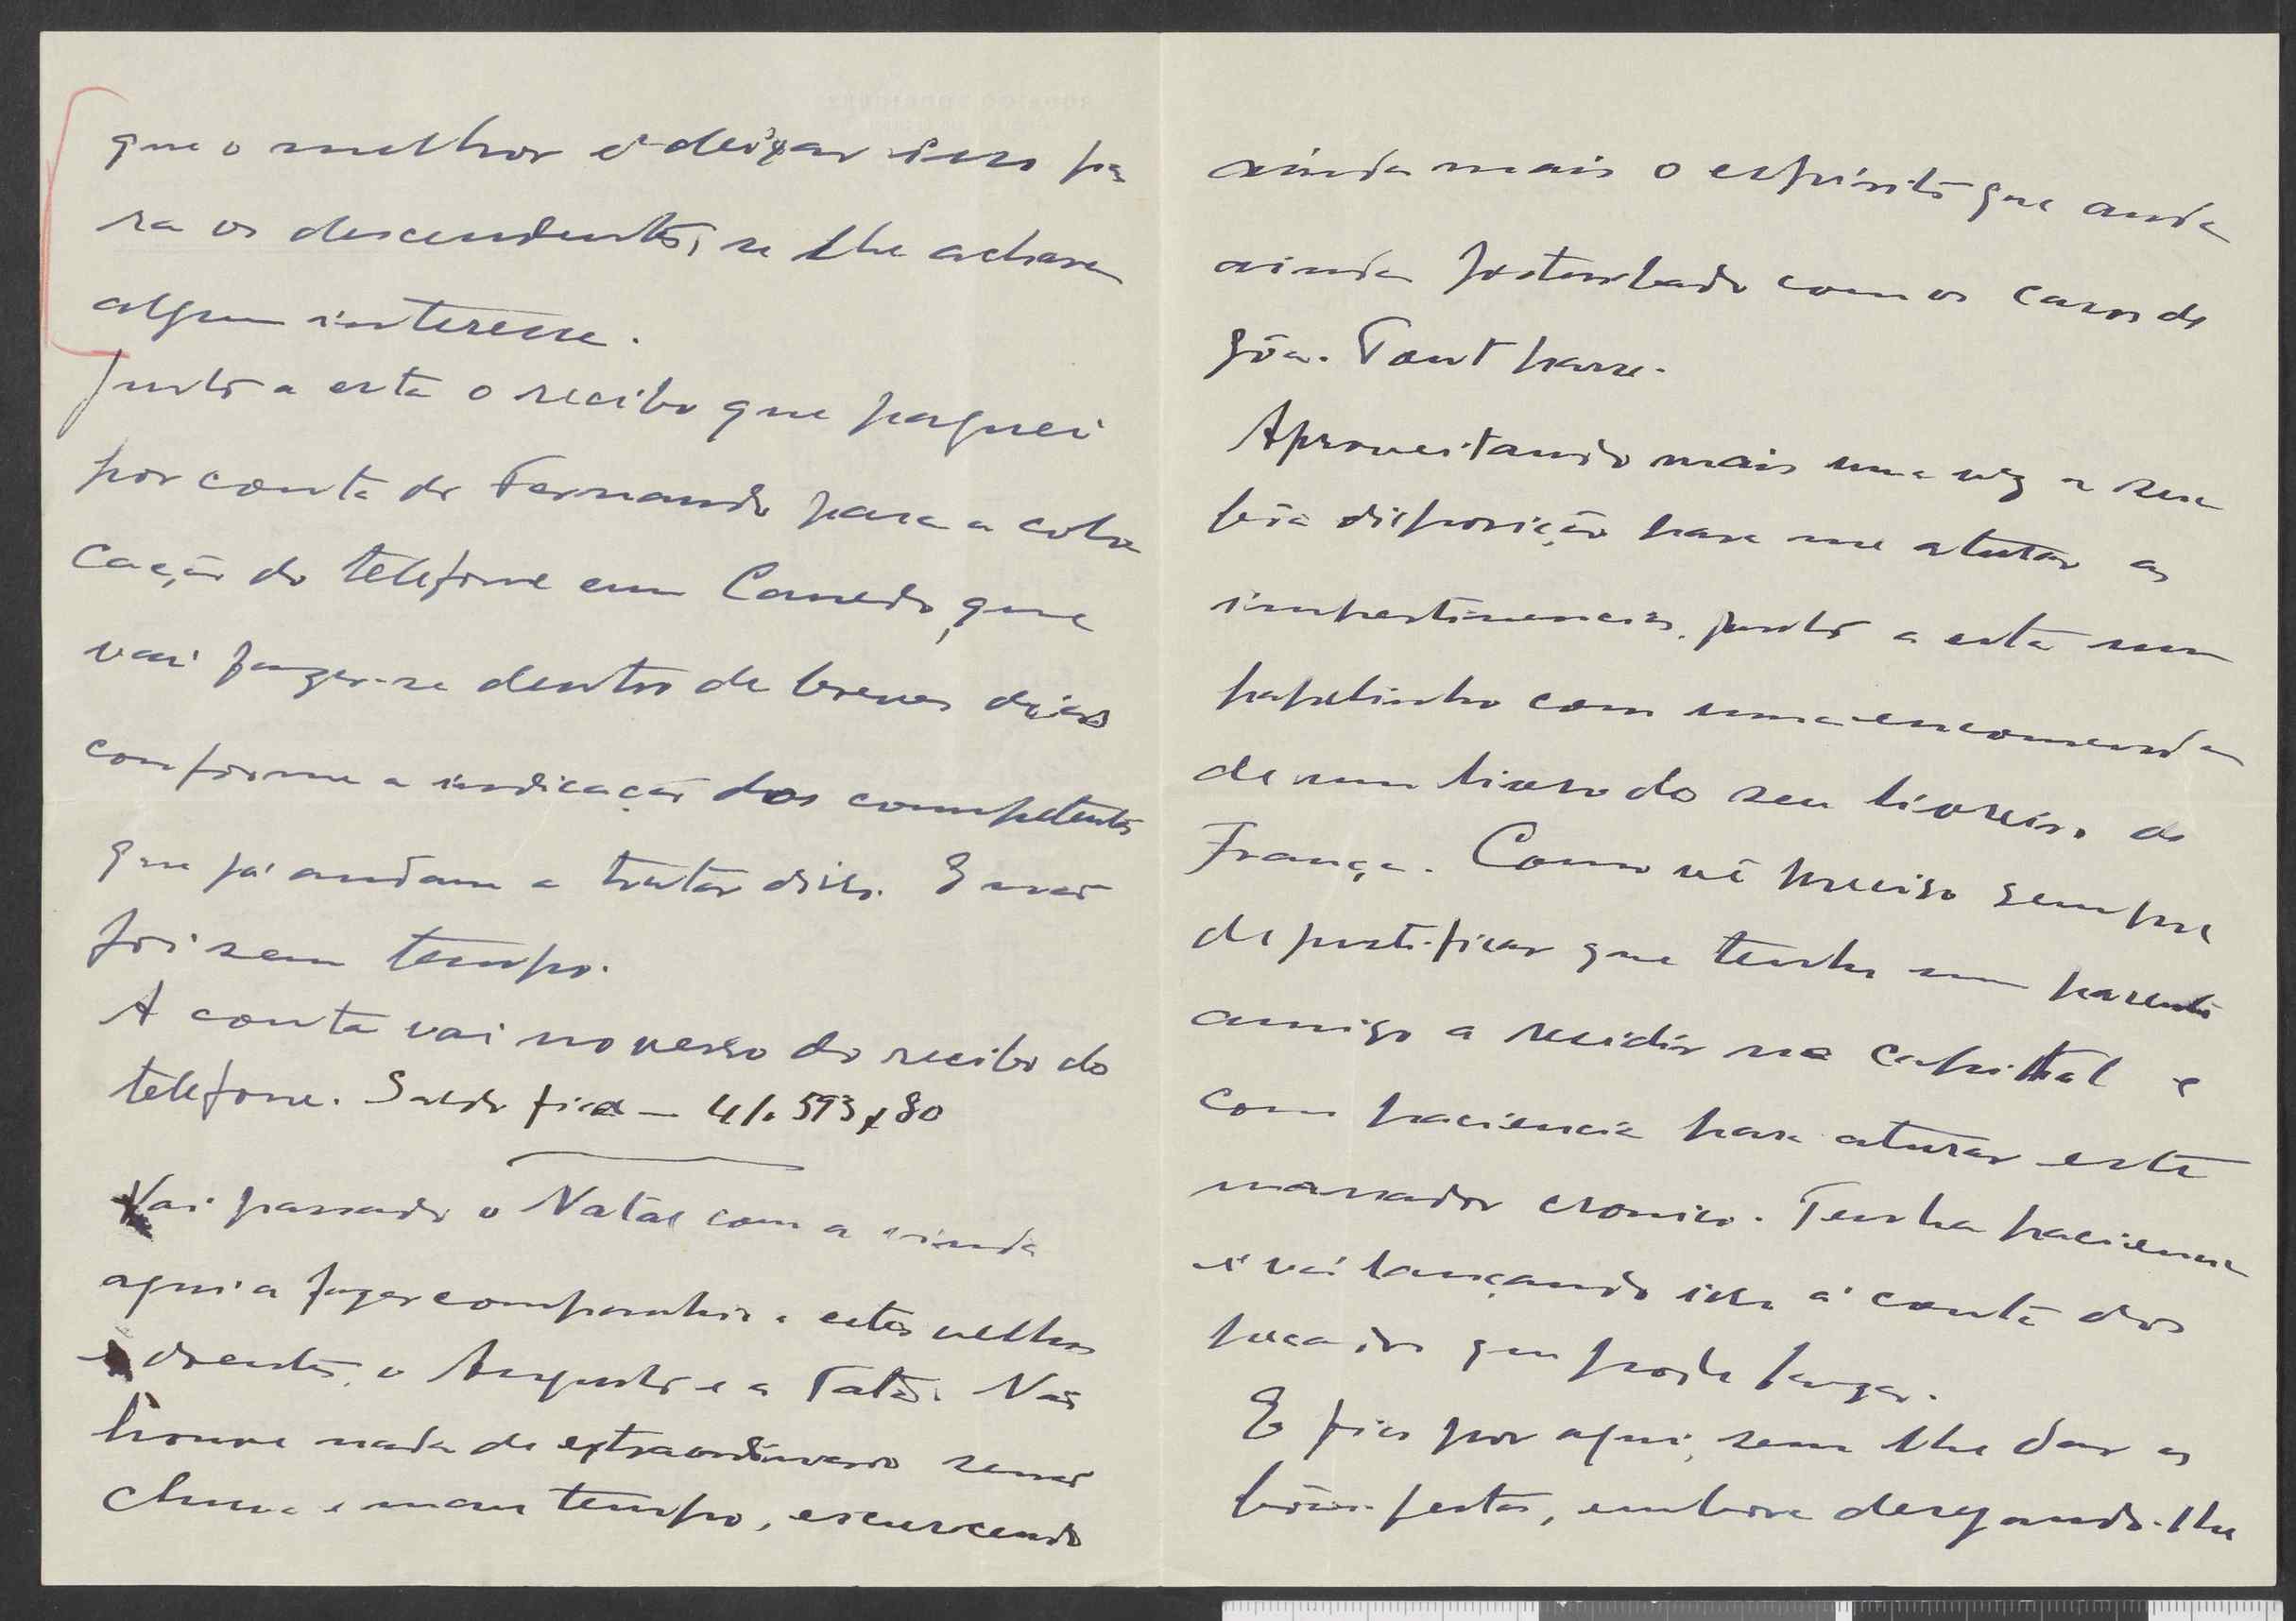 que o melhor é deixar isso pa
ra os descendentes, se lhe acharem
algum interesse.
Junto a esta o recibo que paguei
por conta do Fernando para a colo
cação do telefone em Canedo, que
vai fazer-se dentro de breves dias
conforme a indicação dos competentes
que já andam a tratar disso. E não
foi sem tempo.
A conta vai no verso do recibo do
telefone. Saldo fica — 4/. 593$80
Vai passado o Natal com a vinda
aqui a fazer companhia a estes velhos
e doentes, o Augusto e a Tatá. Não
houve nada de extraordinario senão
chuva e mau tempo, escurcendo
ainda mais o espírito que anda
ainda perturbado com os casos de
Gôa. Tout passe.
Aproveitando mais uma vez a sua
bôa disposição para me aturar as
impertinencias, junto a esta um
papelinho com uma encomenda
de um livro do seu livreiro de
França. Como vê preciso sempre
de justificar que tenho um parente
amigo a residir na capital e
com paciencia para aturar este
massador cronico. Tenha paciencia
e vá lançando isso á conta dos
pecados que pode fazer.
E fico por aqui, sem lhe dar as
bôas festas, embora desejando-lhe